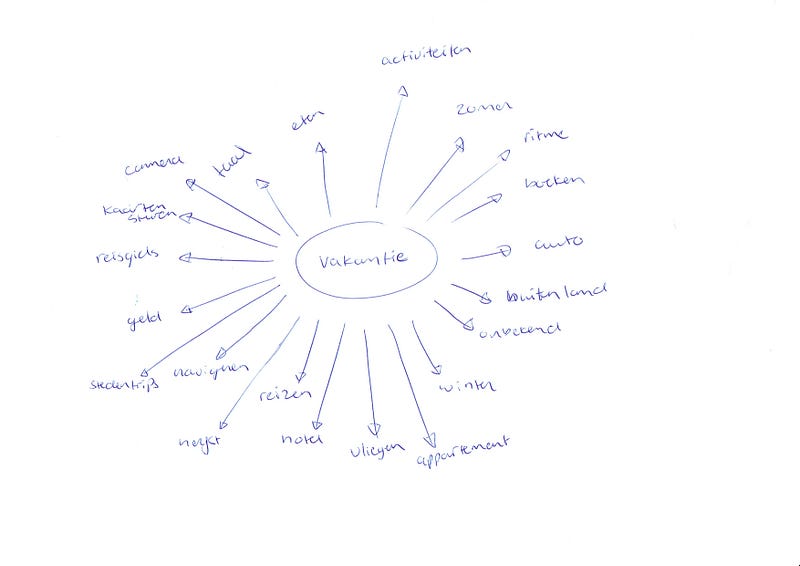 activiteiten
zomer
eten
ritme
camera
taal
boeken
kaarten
sturen
auto
reisgids
vakantie
buitenland
geld
onbekend
stedentrips
navigeren
reizen
winter
hotel
vliegen
appartement